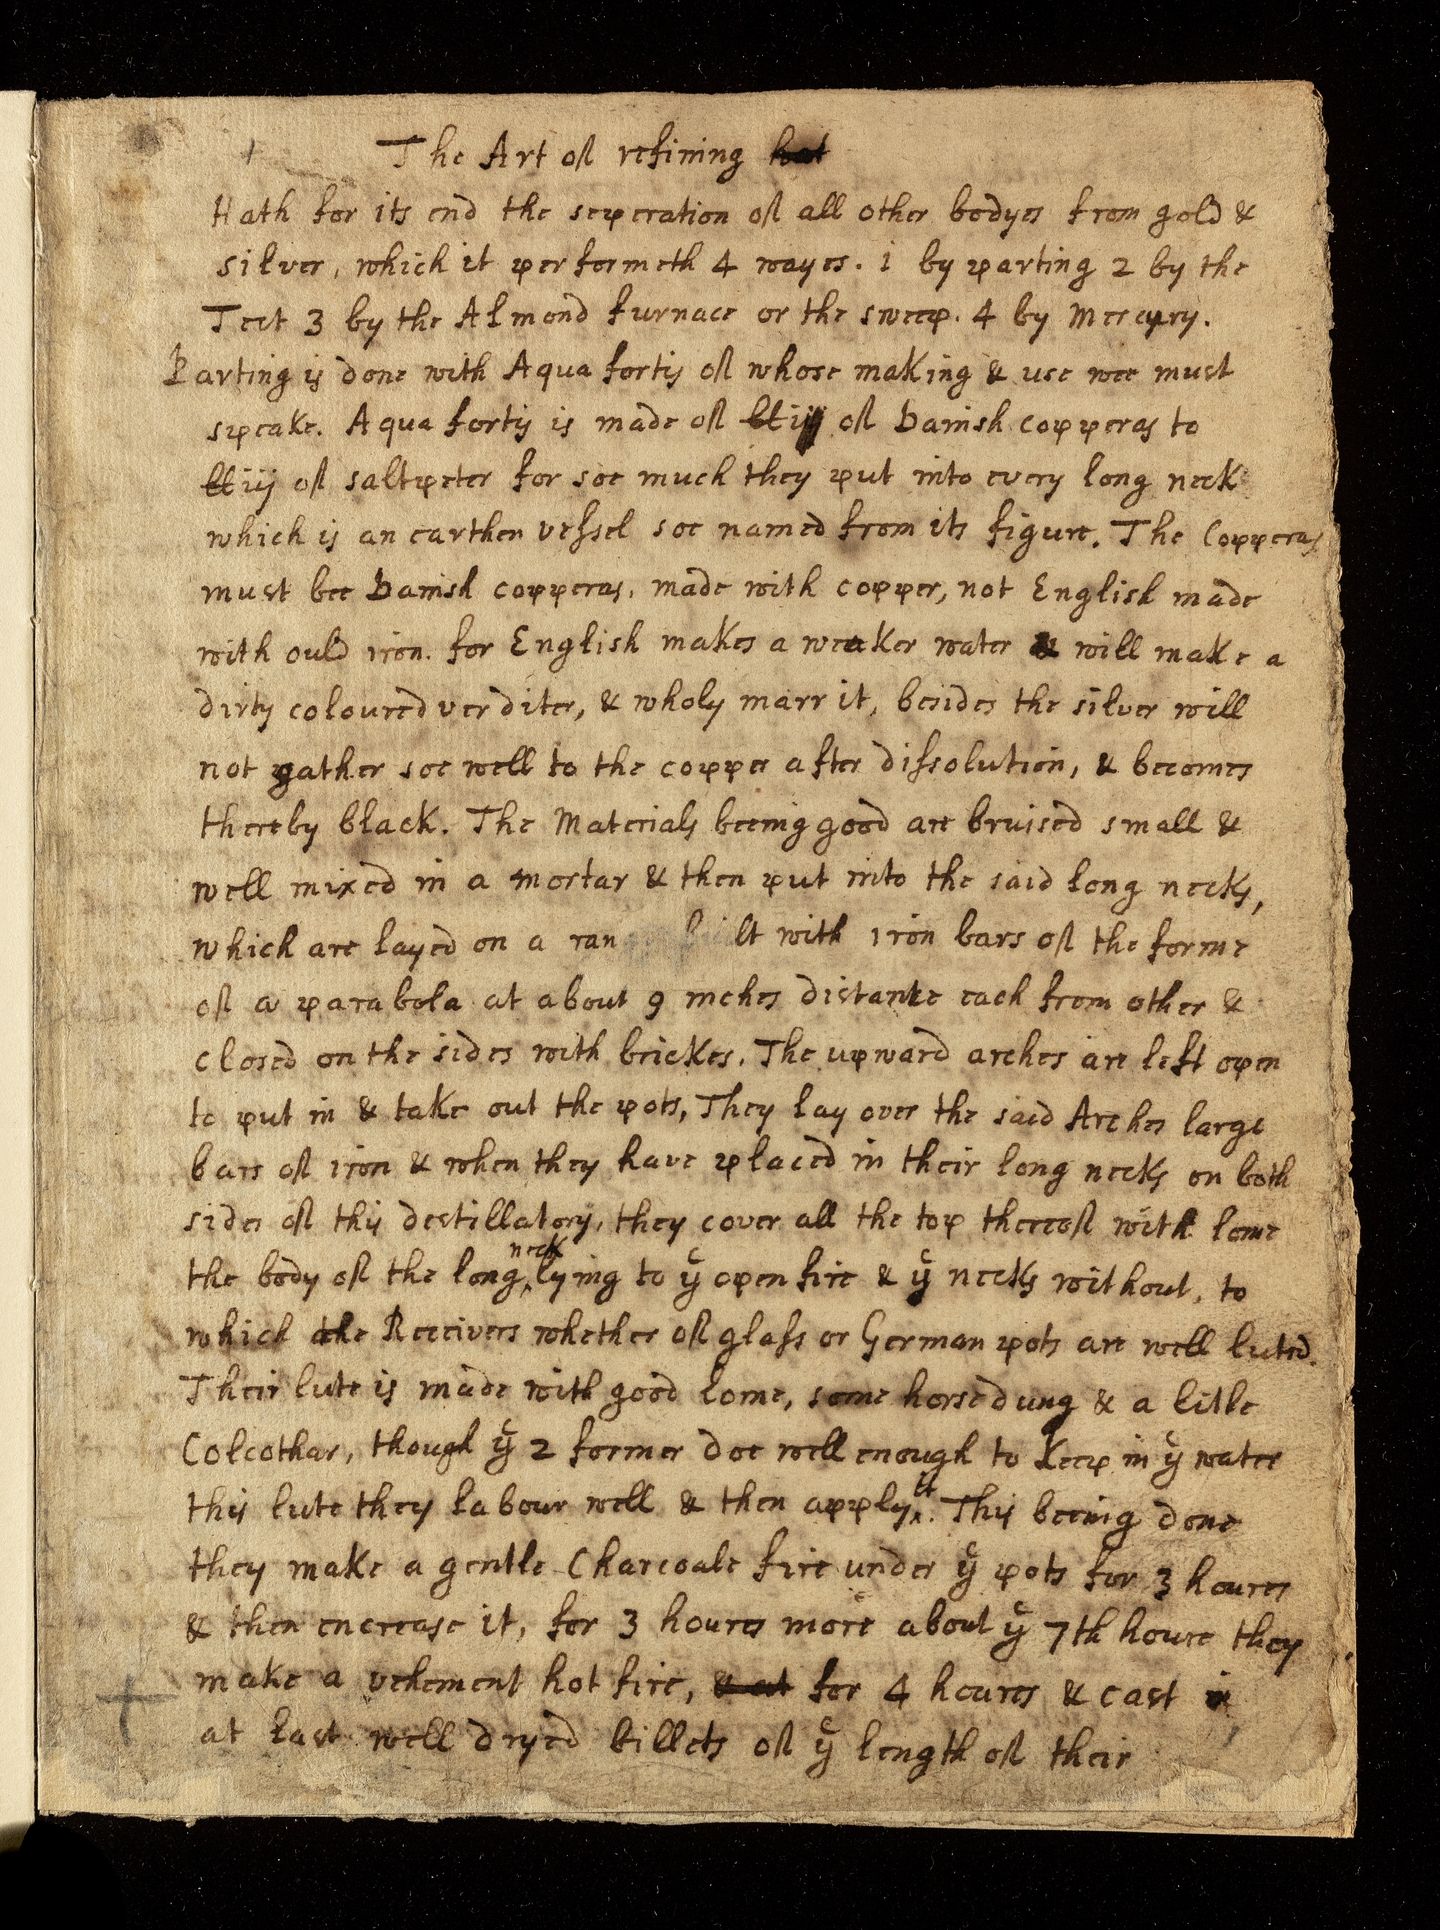 The Art of refining hat
Hath for its end the seperation of all other bodyes from gold &
silver, which it performeth 4 wayes. 1 by parting 2 by the
Test 3 by the Almond furnace or the sweep. 4 by Mercury.
Parting is done with Aqua fortis of whose making & use wee must
speake. Aqua fortis is made of lt iij of Danish copperas to
lt iij of saltpeter for soe much they put into every long neck
which is an earthen vessel soe named from its figure. The Copperas
must bee Danish copperas, made with copper, not English made
with ould iron. for English makes a weaker water & will make a
dirty coloured verditer, & wholy marr it, besides the silver will
not gather soe well to the copper after dissolution, & becomes
thereby black. The Materials beeing good are bruised small &
well mixed in a mortar & then put into the said long necks,
which are layed on a ran built with iron bars of the forme
of a parabola at about 9 inches distance each from other &
closed on the sides with brickes. The upward arches are left open
to put in & take out the pots, They lay over the said Arches large
bars of iron & when they have placed in their long necks on both
sides of this destillatory, they cover all the top thereof with lome
the body of the long neck lying to yͤ open fire & yͤ necks without, to
which the Receivers whether of glass or German pots are well luted.
Their lute is made with good lome, some horse dung & a litle
Colcothar, though yͤ 2 former doe well enough to keep in yͤ water
this lute they labour well & then apply it. This beeing done
they make a gentle Charcoale fire under yͤ pots for 3 houres
& then encrease it, for 3 houres more about yͤ 7th houre they
make a vehement hot fire, & at for 4 houres & cast in
at last well dryed billets of yͤ length of their